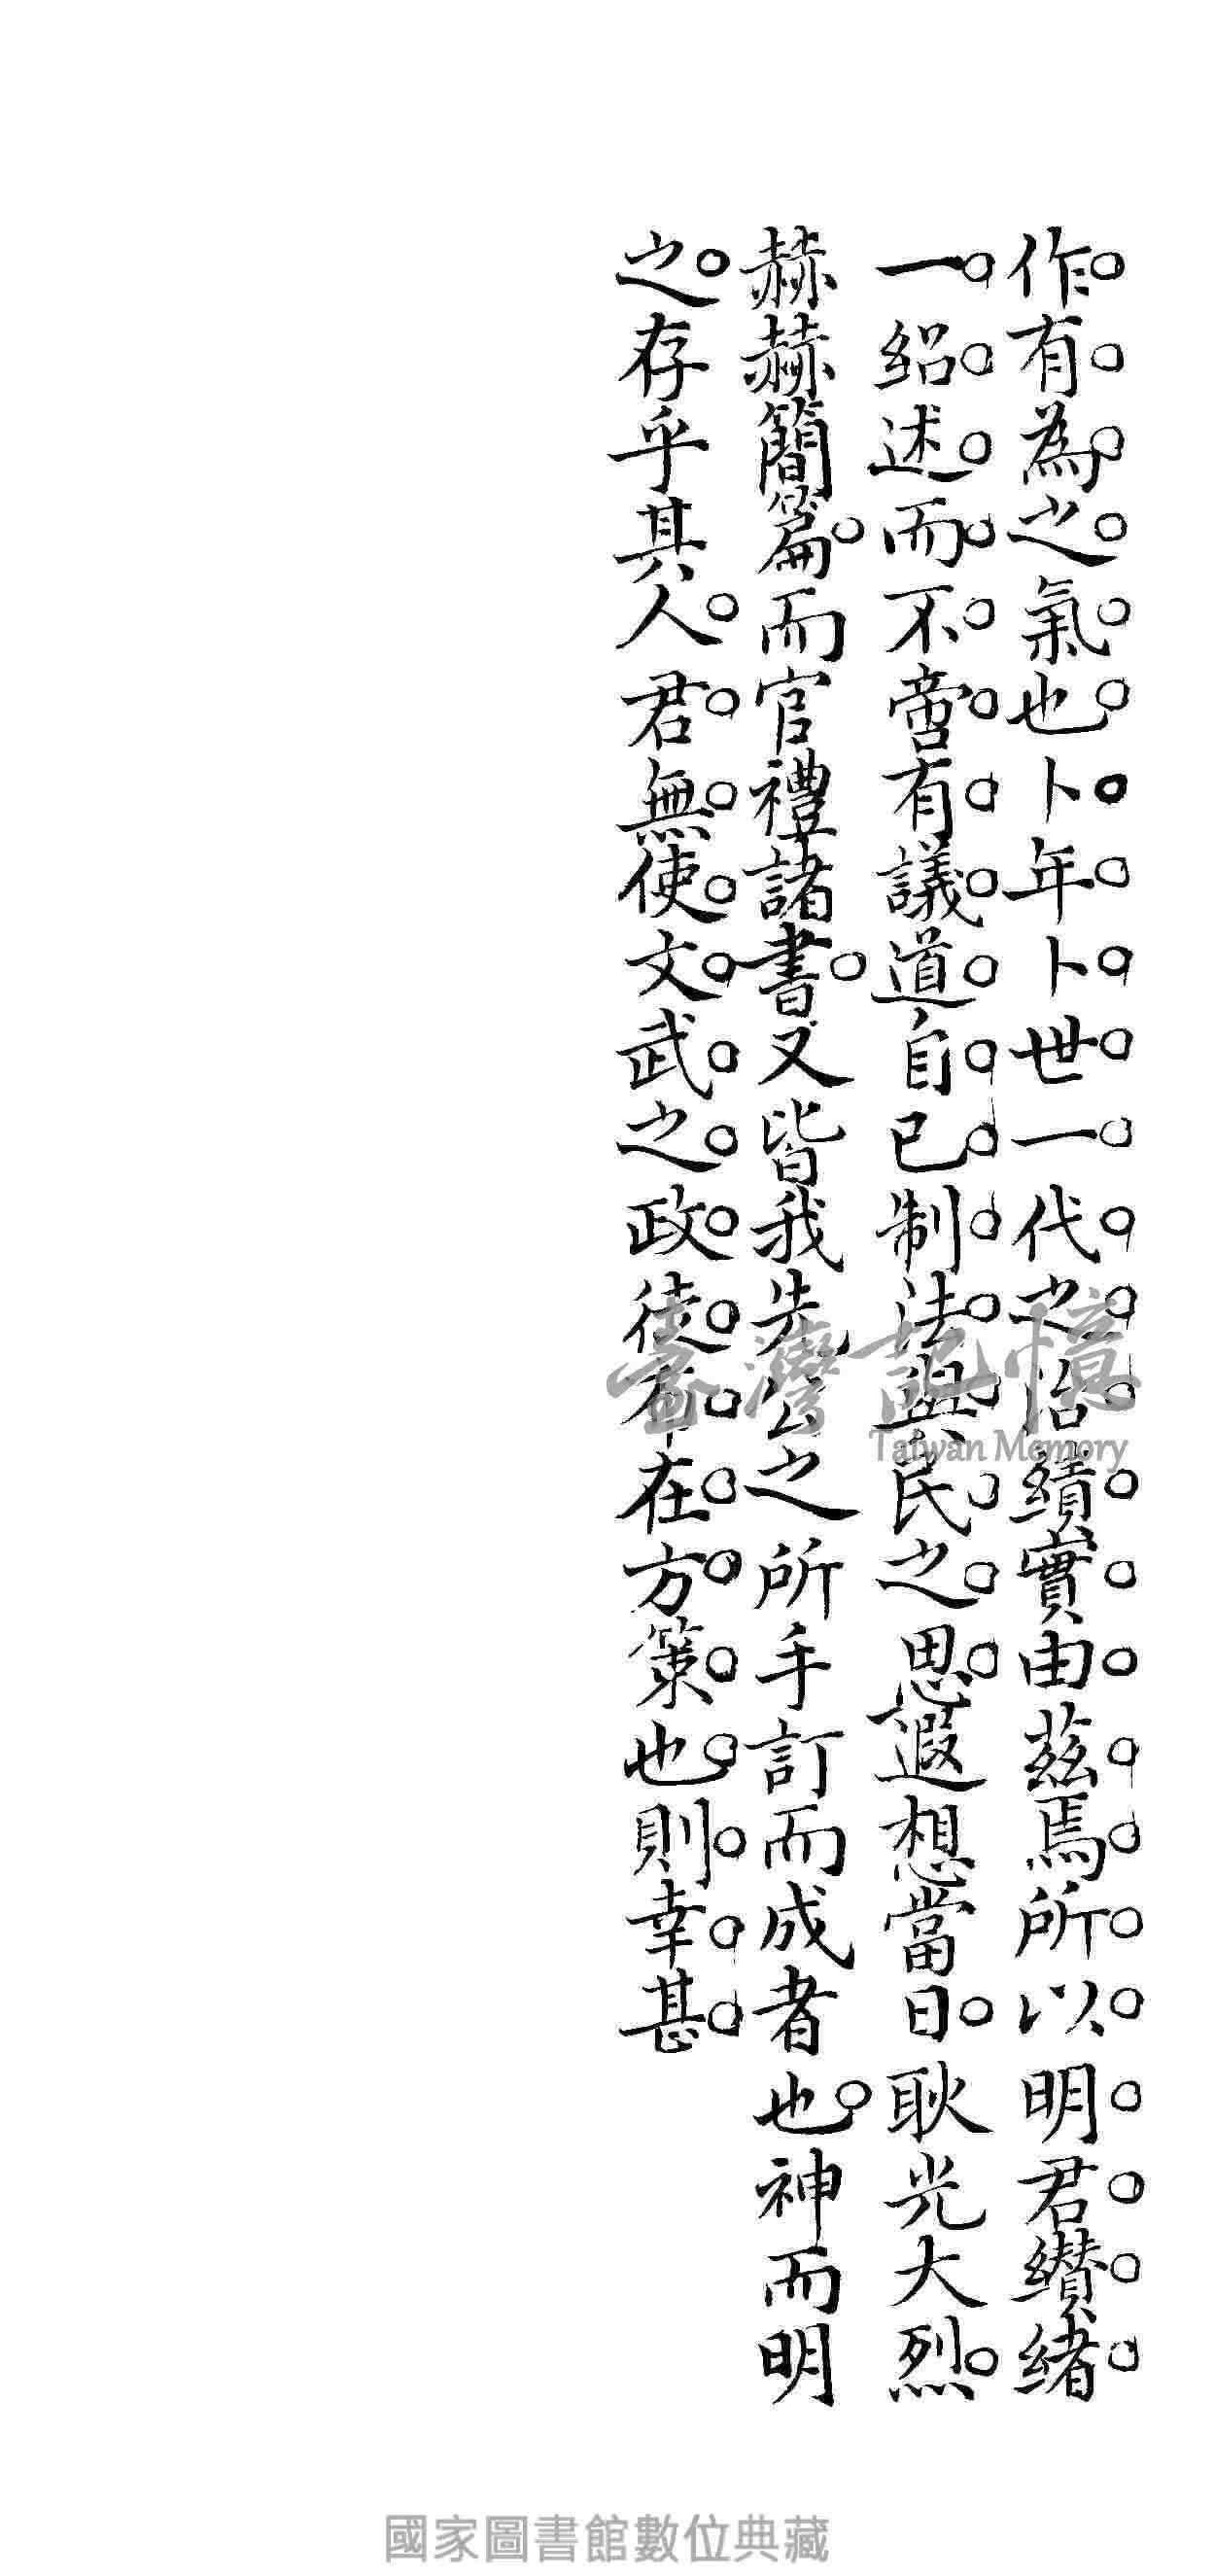 作有為之氣也卜年卜世一代之治績實由茲焉所以明君纘緒
一紹述而不啻有議道自己制法與民之思遐想當日耿光大烈
赫赫簡篇而官禮諸書又皆我先公之所手訂而成者也神而明
之存乎其人君無使文武之政徒布在方策也則幸甚
臺灣記憶
Taiwan Memory
國家圖書館數位典藏